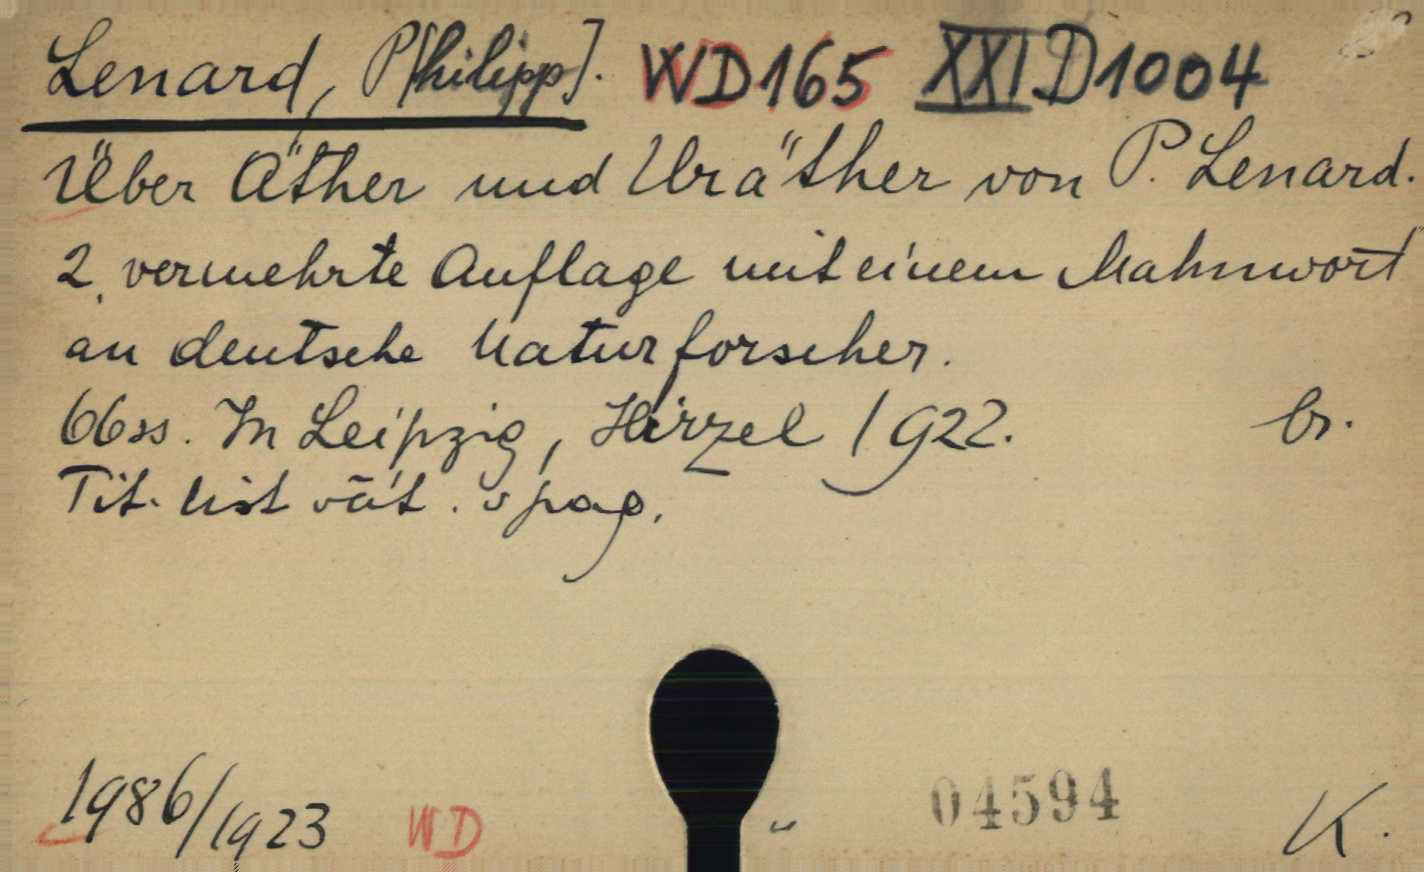 Lenard, P[hilipp]. WD165 XXI D1004
Über Äther und Uräther von P. Lenard.
2. vermehrte Auflage mit einem Mahnwort
an deutsche Naturforscher.
66ss. In Leipzig, Hirzel 1922. br.
Tit. list vät. v pag.
1986/1923 WD 04594 K.